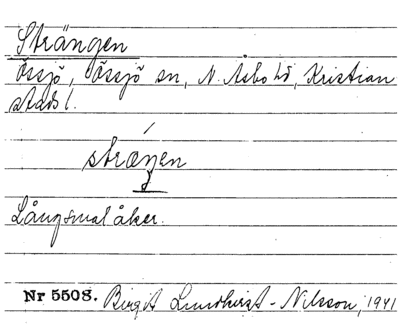 Strängen
Össjö, Össjö sn, N. Åsbo hd, Kristian
stads l.
stræŋen
Långsmal åker.
Nr 5508. Birgit Lundkvist-Nilsson, 1941